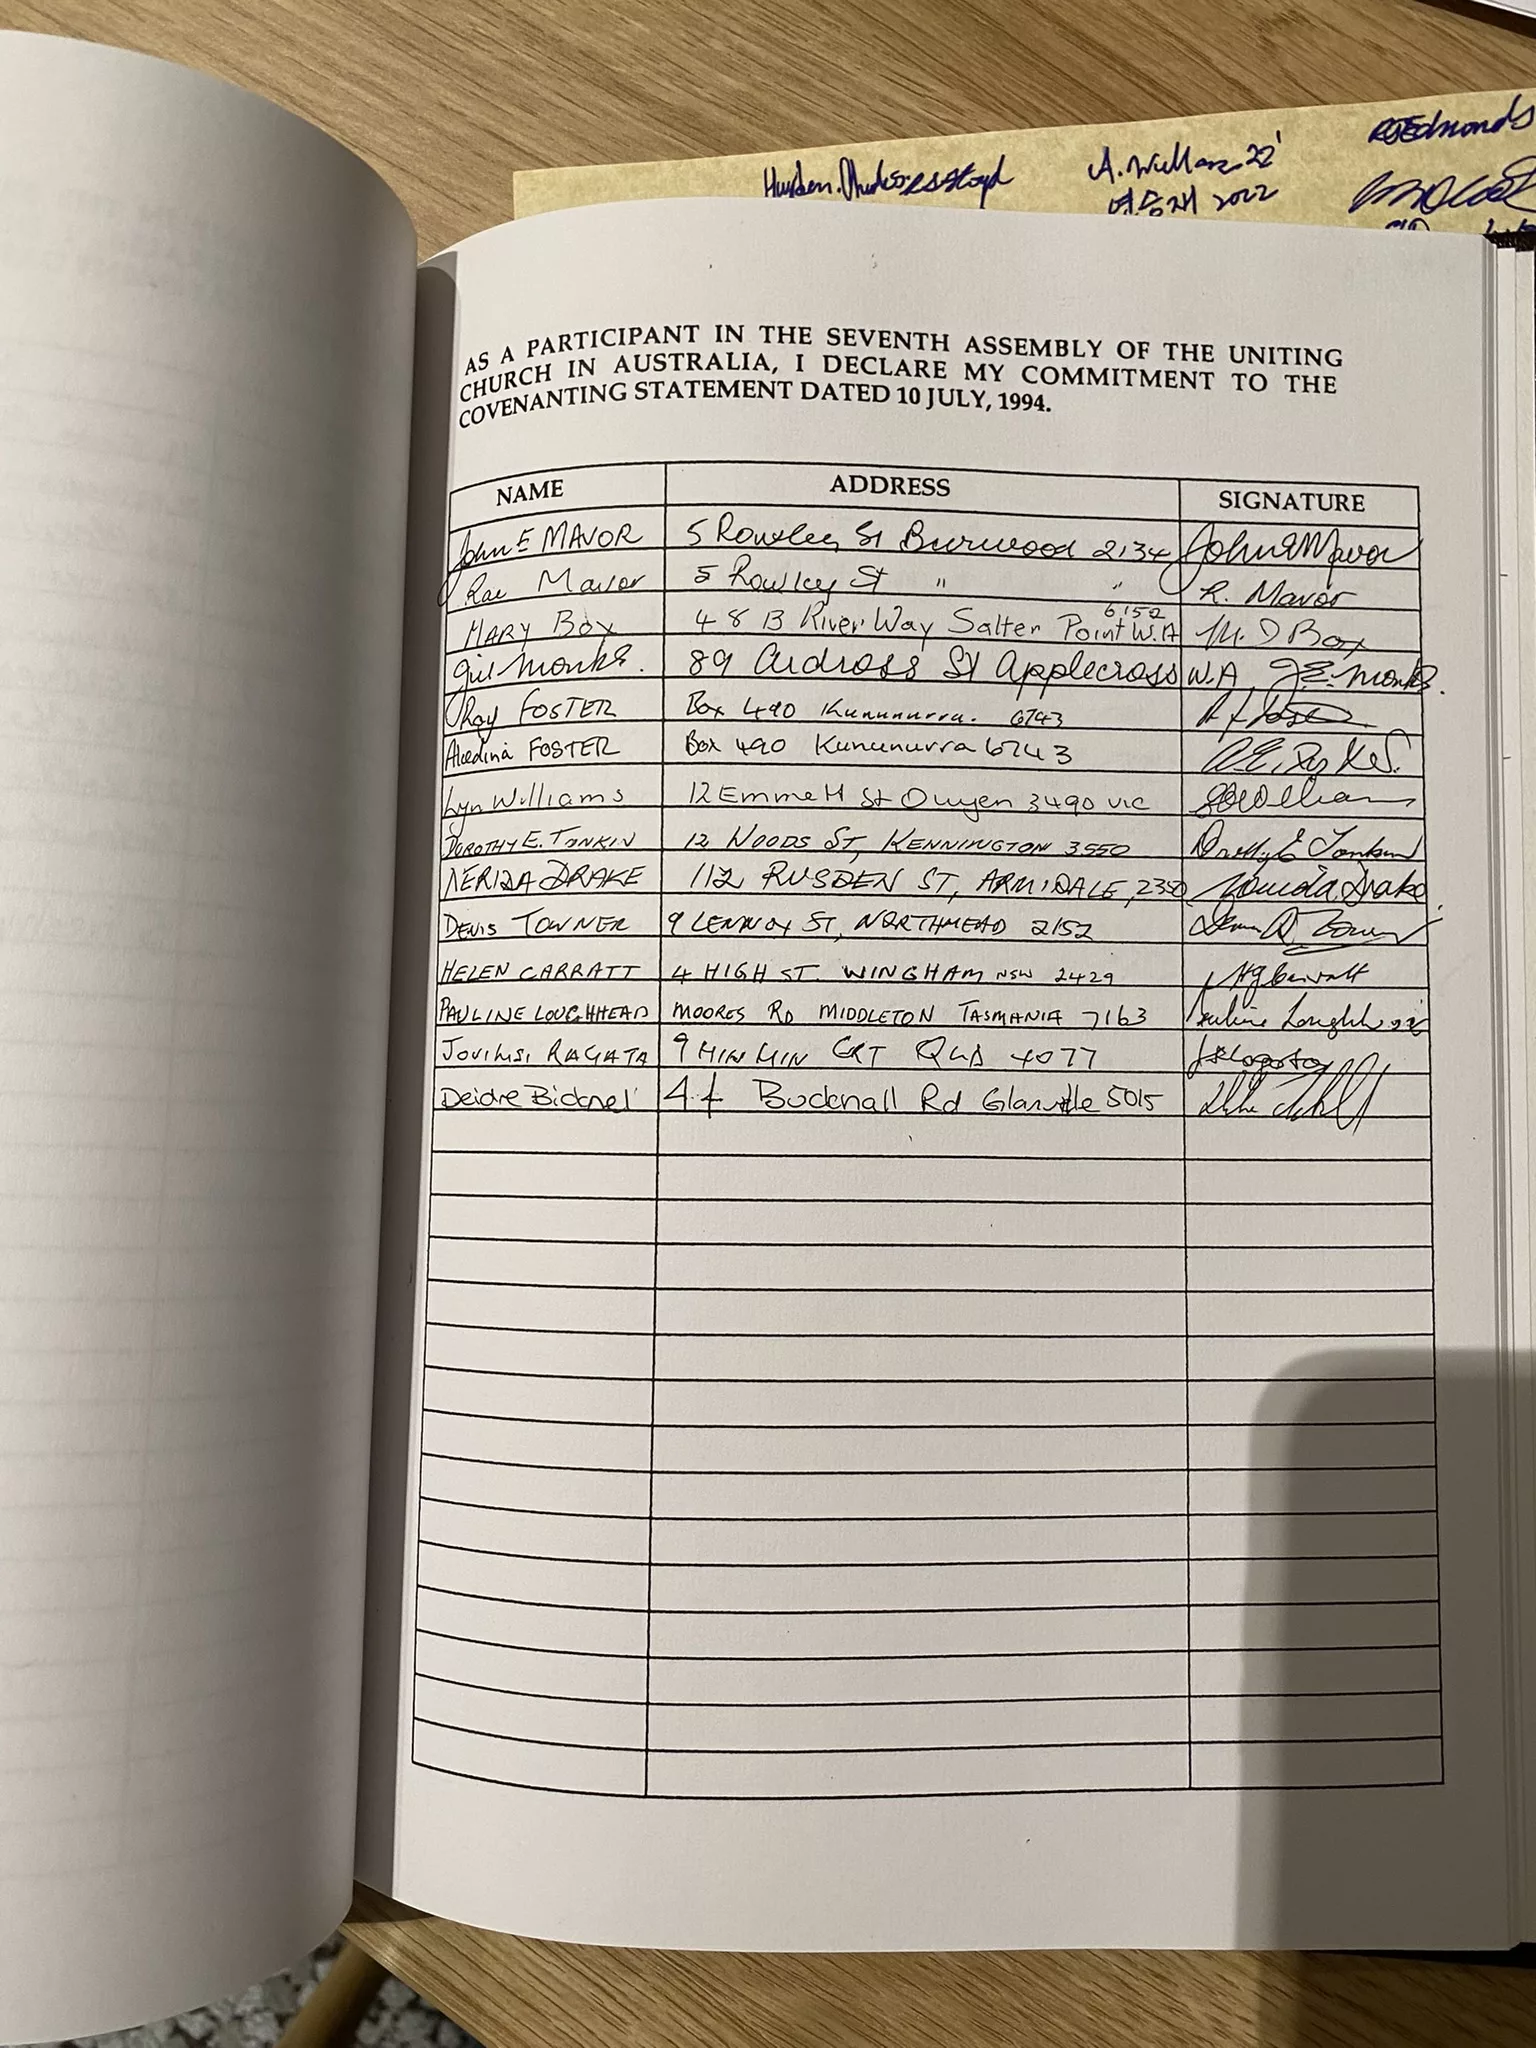 A. Wallace 22'
여승재 2022
RSEdmonds
AS A PARTICIPANT IN THE SEVENTH ASSEMBLY OF THE UNITING
CHURCH IN AUSTRALIA, I DECLARE MY COMMITMENT TO THE
COVENANTING STATEMENT DATED 10 JULY, 1994.
NAME ADDRESS SIGNATURE
John E MAVOR 5 Rowley St Burwood 2134 John E Mavor
Rae Mavor 5 Rowley St " " R. Mavor
6152
MARY BOX 48 B River Way Salter Point W.A M. D Box
Gill Monks. 89 Ardross St Applecross W.A. J.E. Monks.
Roy FOSTER Box 490 Kununurra. 6743
Alvedina FOSTER Box 490 Kununurra 6743
Lyn Williams 12 Emmett St Ouyen 3490 VIC Williams
DOROTHY E. TONKIN 12 WOODS ST, KENNINGTON 3550 Dorothy E Tonkin
NERIDA DRAKE 112 RUSDEN ST, ARMIDALE, 2350 Nerida Drake
DENIS TOWNER 9 LENNOX ST, NORTHMEAD 2152 Denis Towner
HELEN CARRATT 4 HIGH ST. WINGHAM NSW 2429 HJ Carratt
PAULINE LOUGHHEAD MOORES RD MIDDLETON TASMANIA 7163 Pauline Loughhead
JOVILISI RAGATA 9 MIN MIN CRT QLD 4077
Deidre Bicknel 44 Bucknall Rd Glanville 5015